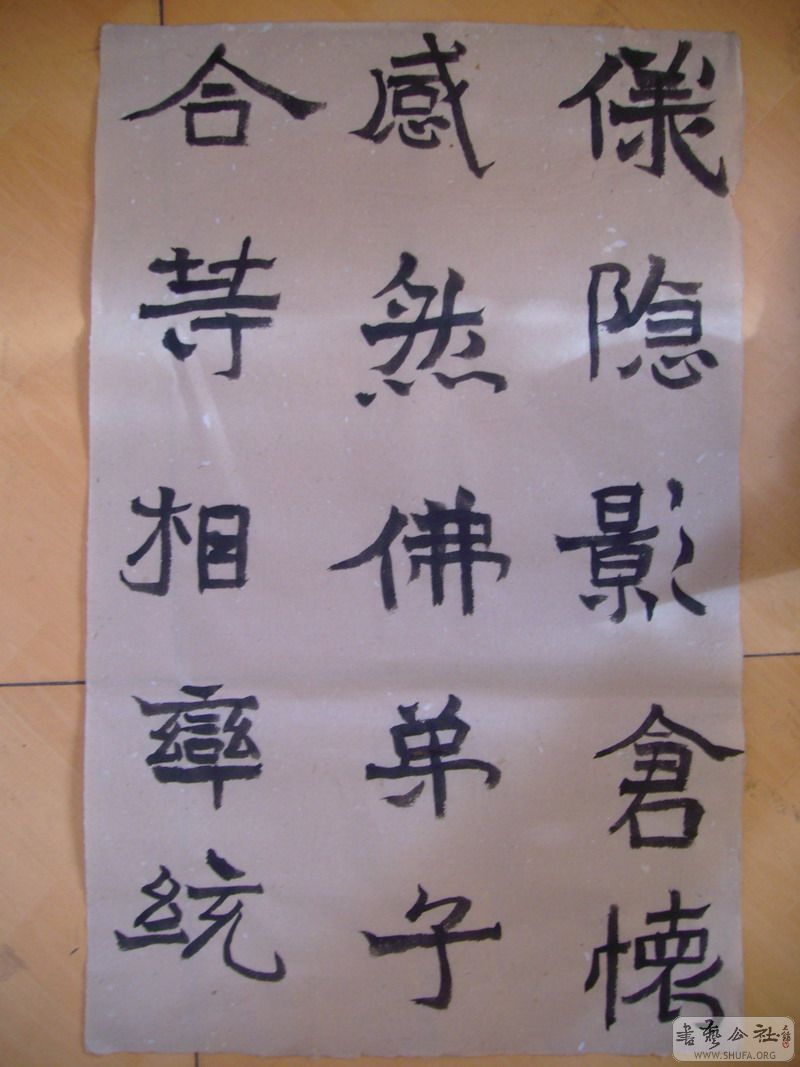 儀隐影倉懐
感然佛弟子
合䒭相率統
書藝公社
WWW.SHUFA.ORG